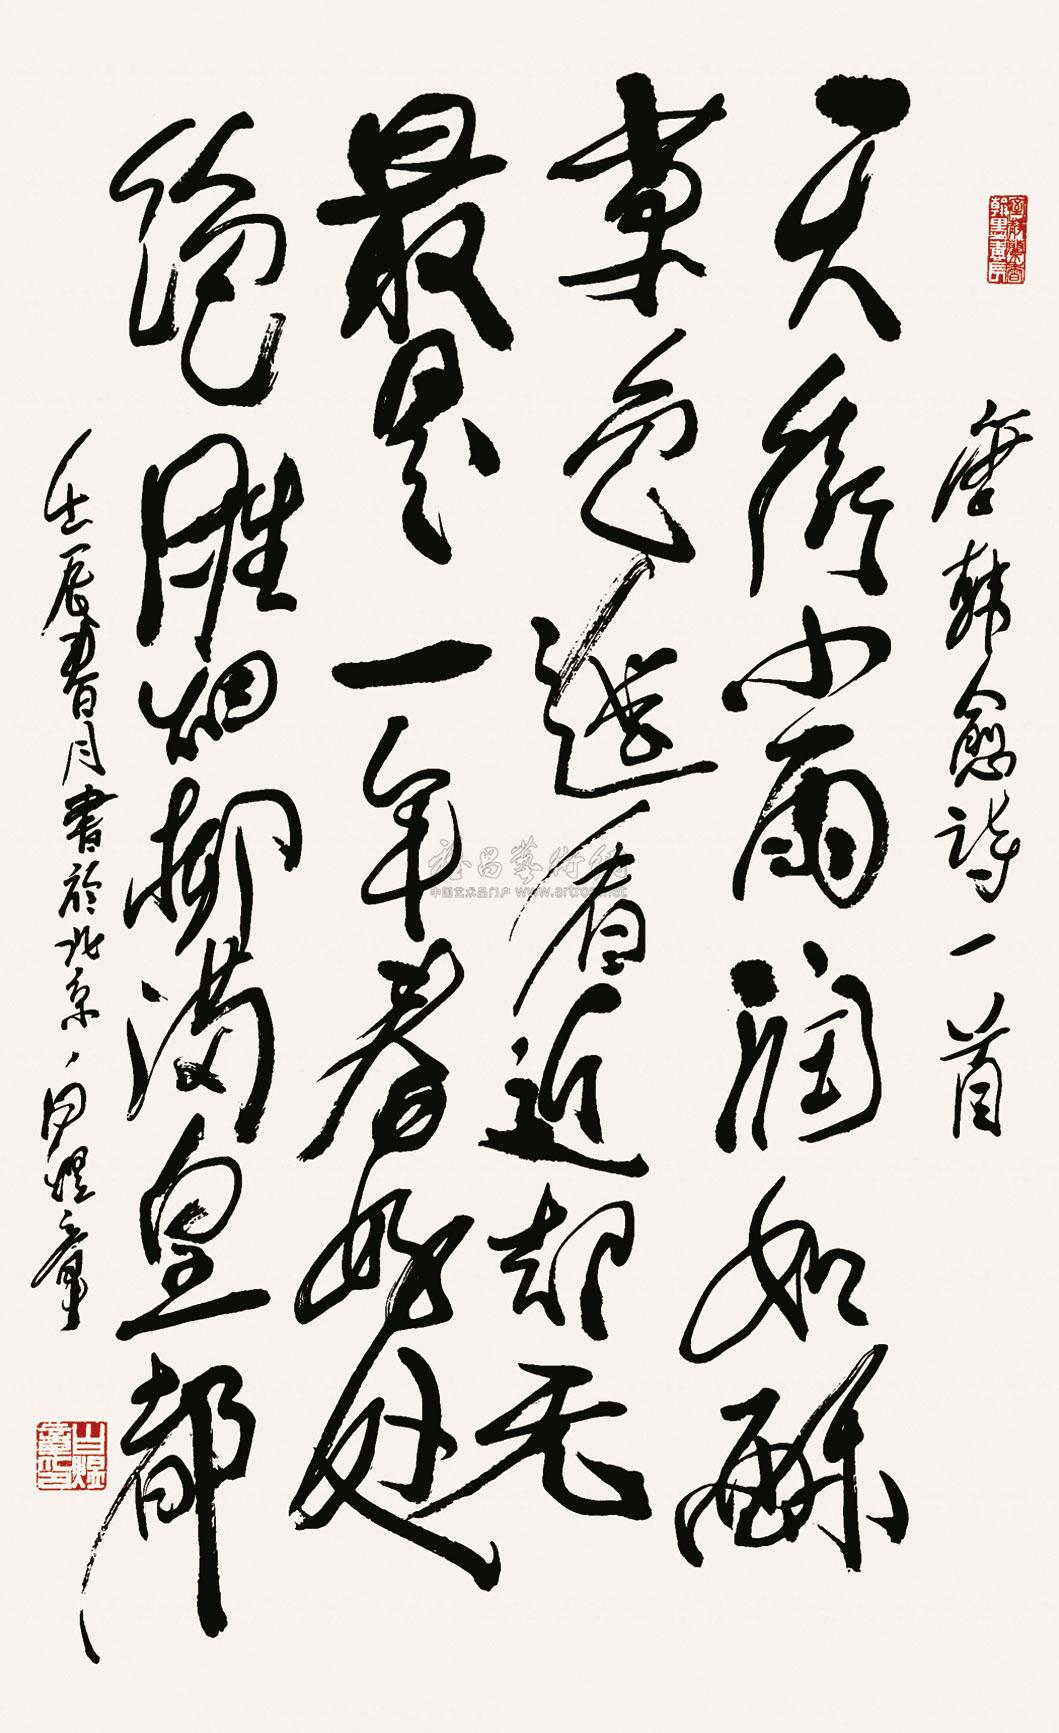 唐韩愈诗一首
天街小雨润如酥
草色遥看近却无
最是一年春好处
绝胜烟柳满皇都
壬辰春月書於北京白煜章
雅昌藝術網
中国艺术品门户 www.artron.net